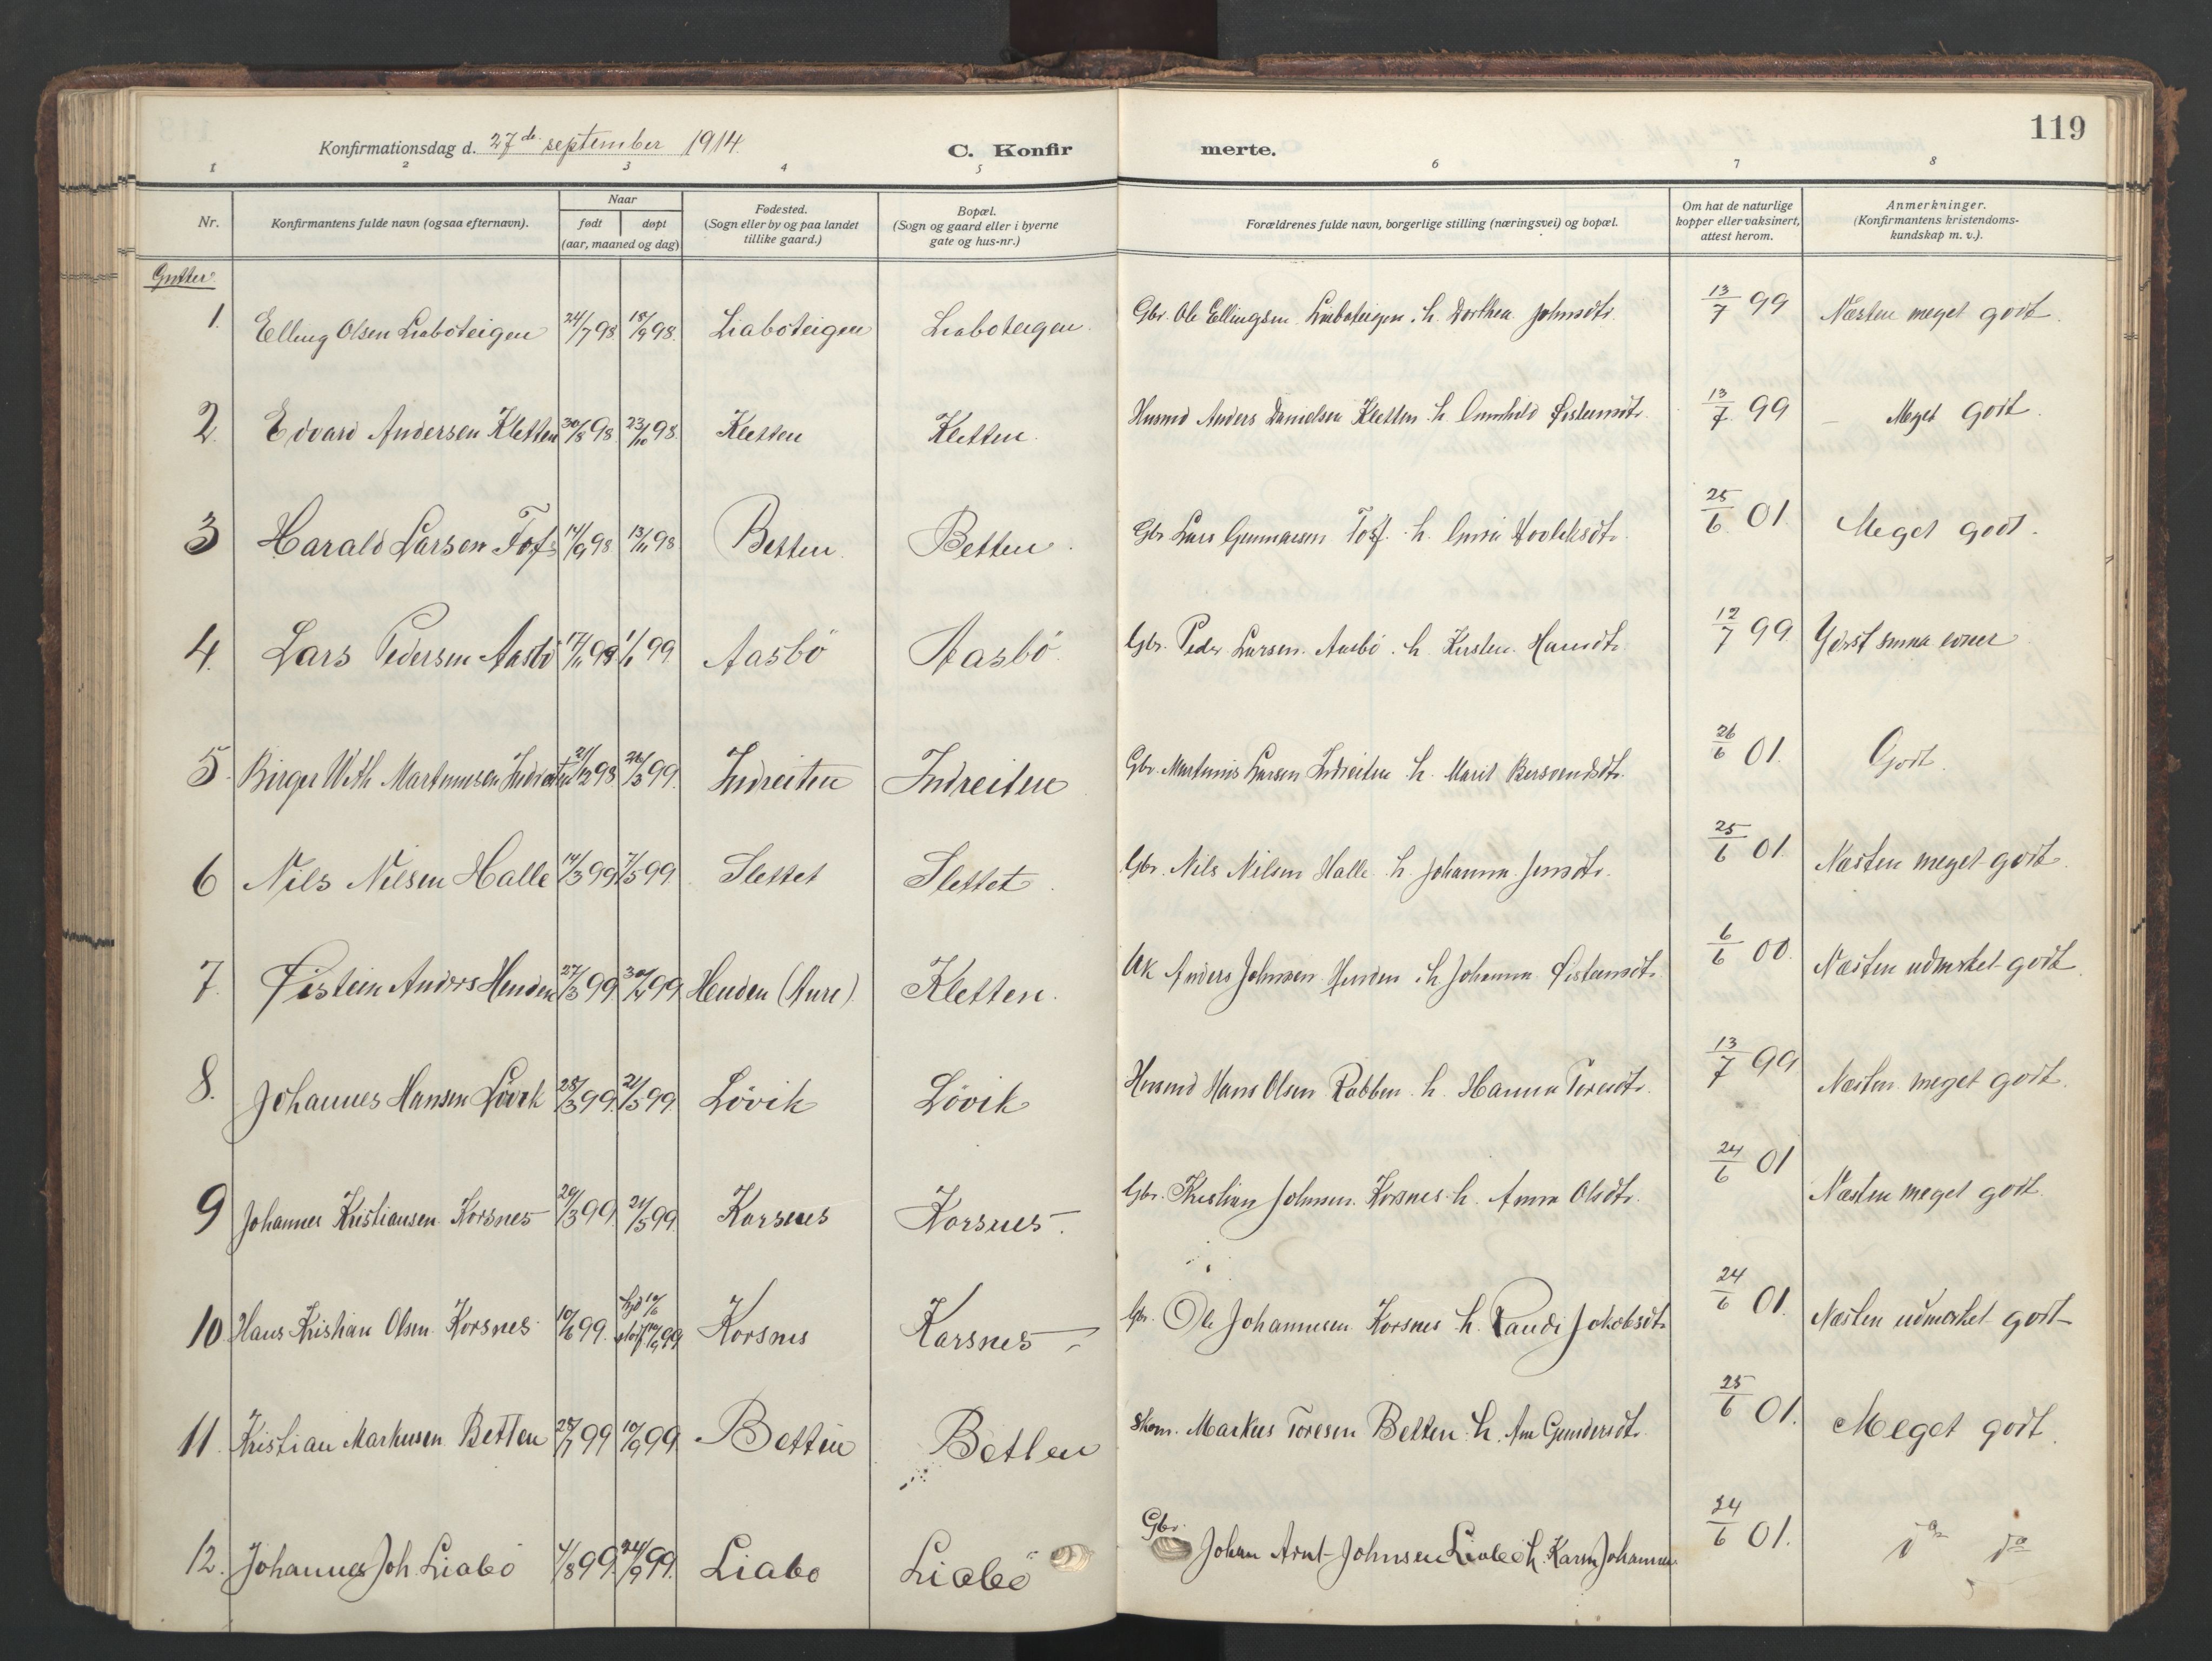 119
Konfirmationsdag d. 27de september 1914. C. Konfirmerte.
1 2 3 4 5 6 7 8
Nr. Konfirmantens fulde navn (ogsaa efternavn). Naar født døpt (aar, maaned og dag) Fødested. (Sogn eller by og paa landet tillike gaard.) Bopæl. (Sogn og gaard eller i byerne gate og hus-nr.) Forældrenes fulde navn, borgerlige stilling (næringsvei) og bopæl. Om hat de naturlige kopper eller vaksinert, attest herom. Anmerkninger. (Konfirmantens kristendoms-kundskap m. v.).
Gutter:
1. Elling Olsen Liaböteigen 24/7 98. 18/9 98. Liaböteigen Liaböteigen. Gbr. Ole Ellingsen Liaböteigen. h. Dorthea Johnsdtr. 13/7 99 Næsten meget godt.
2. Edvard Andersen Kletten 30/8 98 23/10 98. Kletten Kletten. Husmd Anders Danielsen Kletten h. Gunhild Øistensdtr. 13/7 99 Meget godt.
3 Harald Larsen 14/9 98 13/11 98 Betten. Betten. Gbr Lars Gunnarsen h. 25/6 01. Meget godt.
4. Lars Pedersen Aasbö 17/11 98 1/1 99 Aasbö Aasbö. Gbr. Peder Larsen Aasbö. h. Kirsten Hansdtr. 12/7 99 Yderst smaa evner
5. Birger With Martinusen Indreiten 21/12 98 26/3 99. Indreiten Indreiten Gbr. Martinus Larsen Indreiten h. Marit Bersvendsdtr. 26/6 01. Godt.
6 Nils Nilsen Halle 14/3 99 7/5 99. Slettet Slettet. Gbr. Nils Nilsen Halle h. Johanna Jensdtr. 25/6 01. Næsten meget godt.
7. Øistein Anders Henden 27/3 99 30/4 99 Henden (Aure). Kletten. Anders Johnsen Henden h Johanna Øistensdtr. 6/6 00. Næsten udmerket godt.
8. Johannes Hansen Lövik 28/3 99. 21/5 99. Lövik Lövik Husmd Hans Olsen Rabben h. Hanna Toresdtr. 13/7 99 Næsten meget godt.
9 Johannes Kristiansen Korsnes 29/3 99. 21/5 99. Korsnes Korsnes. Gbr. Kristian Johnsen Korsnes h. Anna Olsdtr. 24/6 01 Næsten meget godt.
10. Hans Kristian Olsen Korsnes 10/6 99. 99 Korsnes Korsnes Gbr. Ole Johannesen Korsnes h. Randi Jakobsdtr 24/6 01. Næsten udmerket godt
11. Kristian Markusen Betten 28/7 99 10/9 99. Betten Betten Skom. Markus Toresen Betten h. Ane Gundersdtr. 25/6 01. Meget godt.
12. Johannes Joh. Liabö 4/8 99. 24/9 99. Liabö Liabö Gbr. Johan Arnt Johnsen Liabö h. Karen 24/6 01. do do